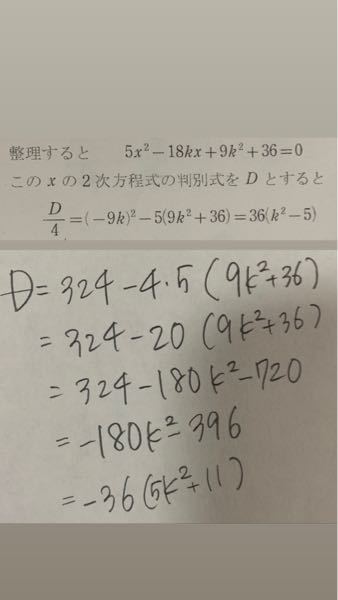 整理すると 5x²−18kx+9k²+36=0
この x の2次方程式の判別式を D とすると
D/4=(−9k)²−5(9k²+36)=36(k²−5)
D=324−4・5(9k²+36)
=324−20(9k²+36)
=324−180k²−720
=−180k²−396
=−36(5k²+11)